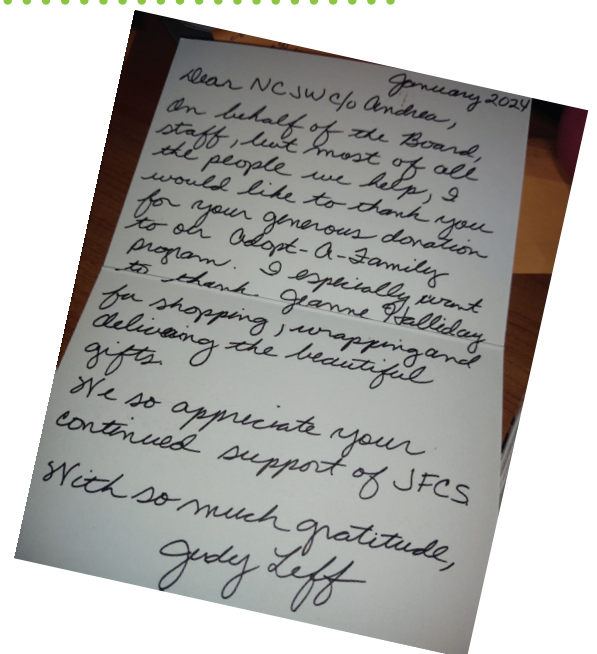 January 2024
Dear NCJW c/o Andrea,
On behalf of the Board,
staff, but most of all
the people we help, I
would like to thank you
for your generous donation
to our Adopt-A-Family
program. I especially want
to thank Jeanne Halliday
for shopping, wrapping and
delivering the beautiful
gifts.
We so appreciate your
continued support of JFCS
With so much gratitude,
Judy Leff